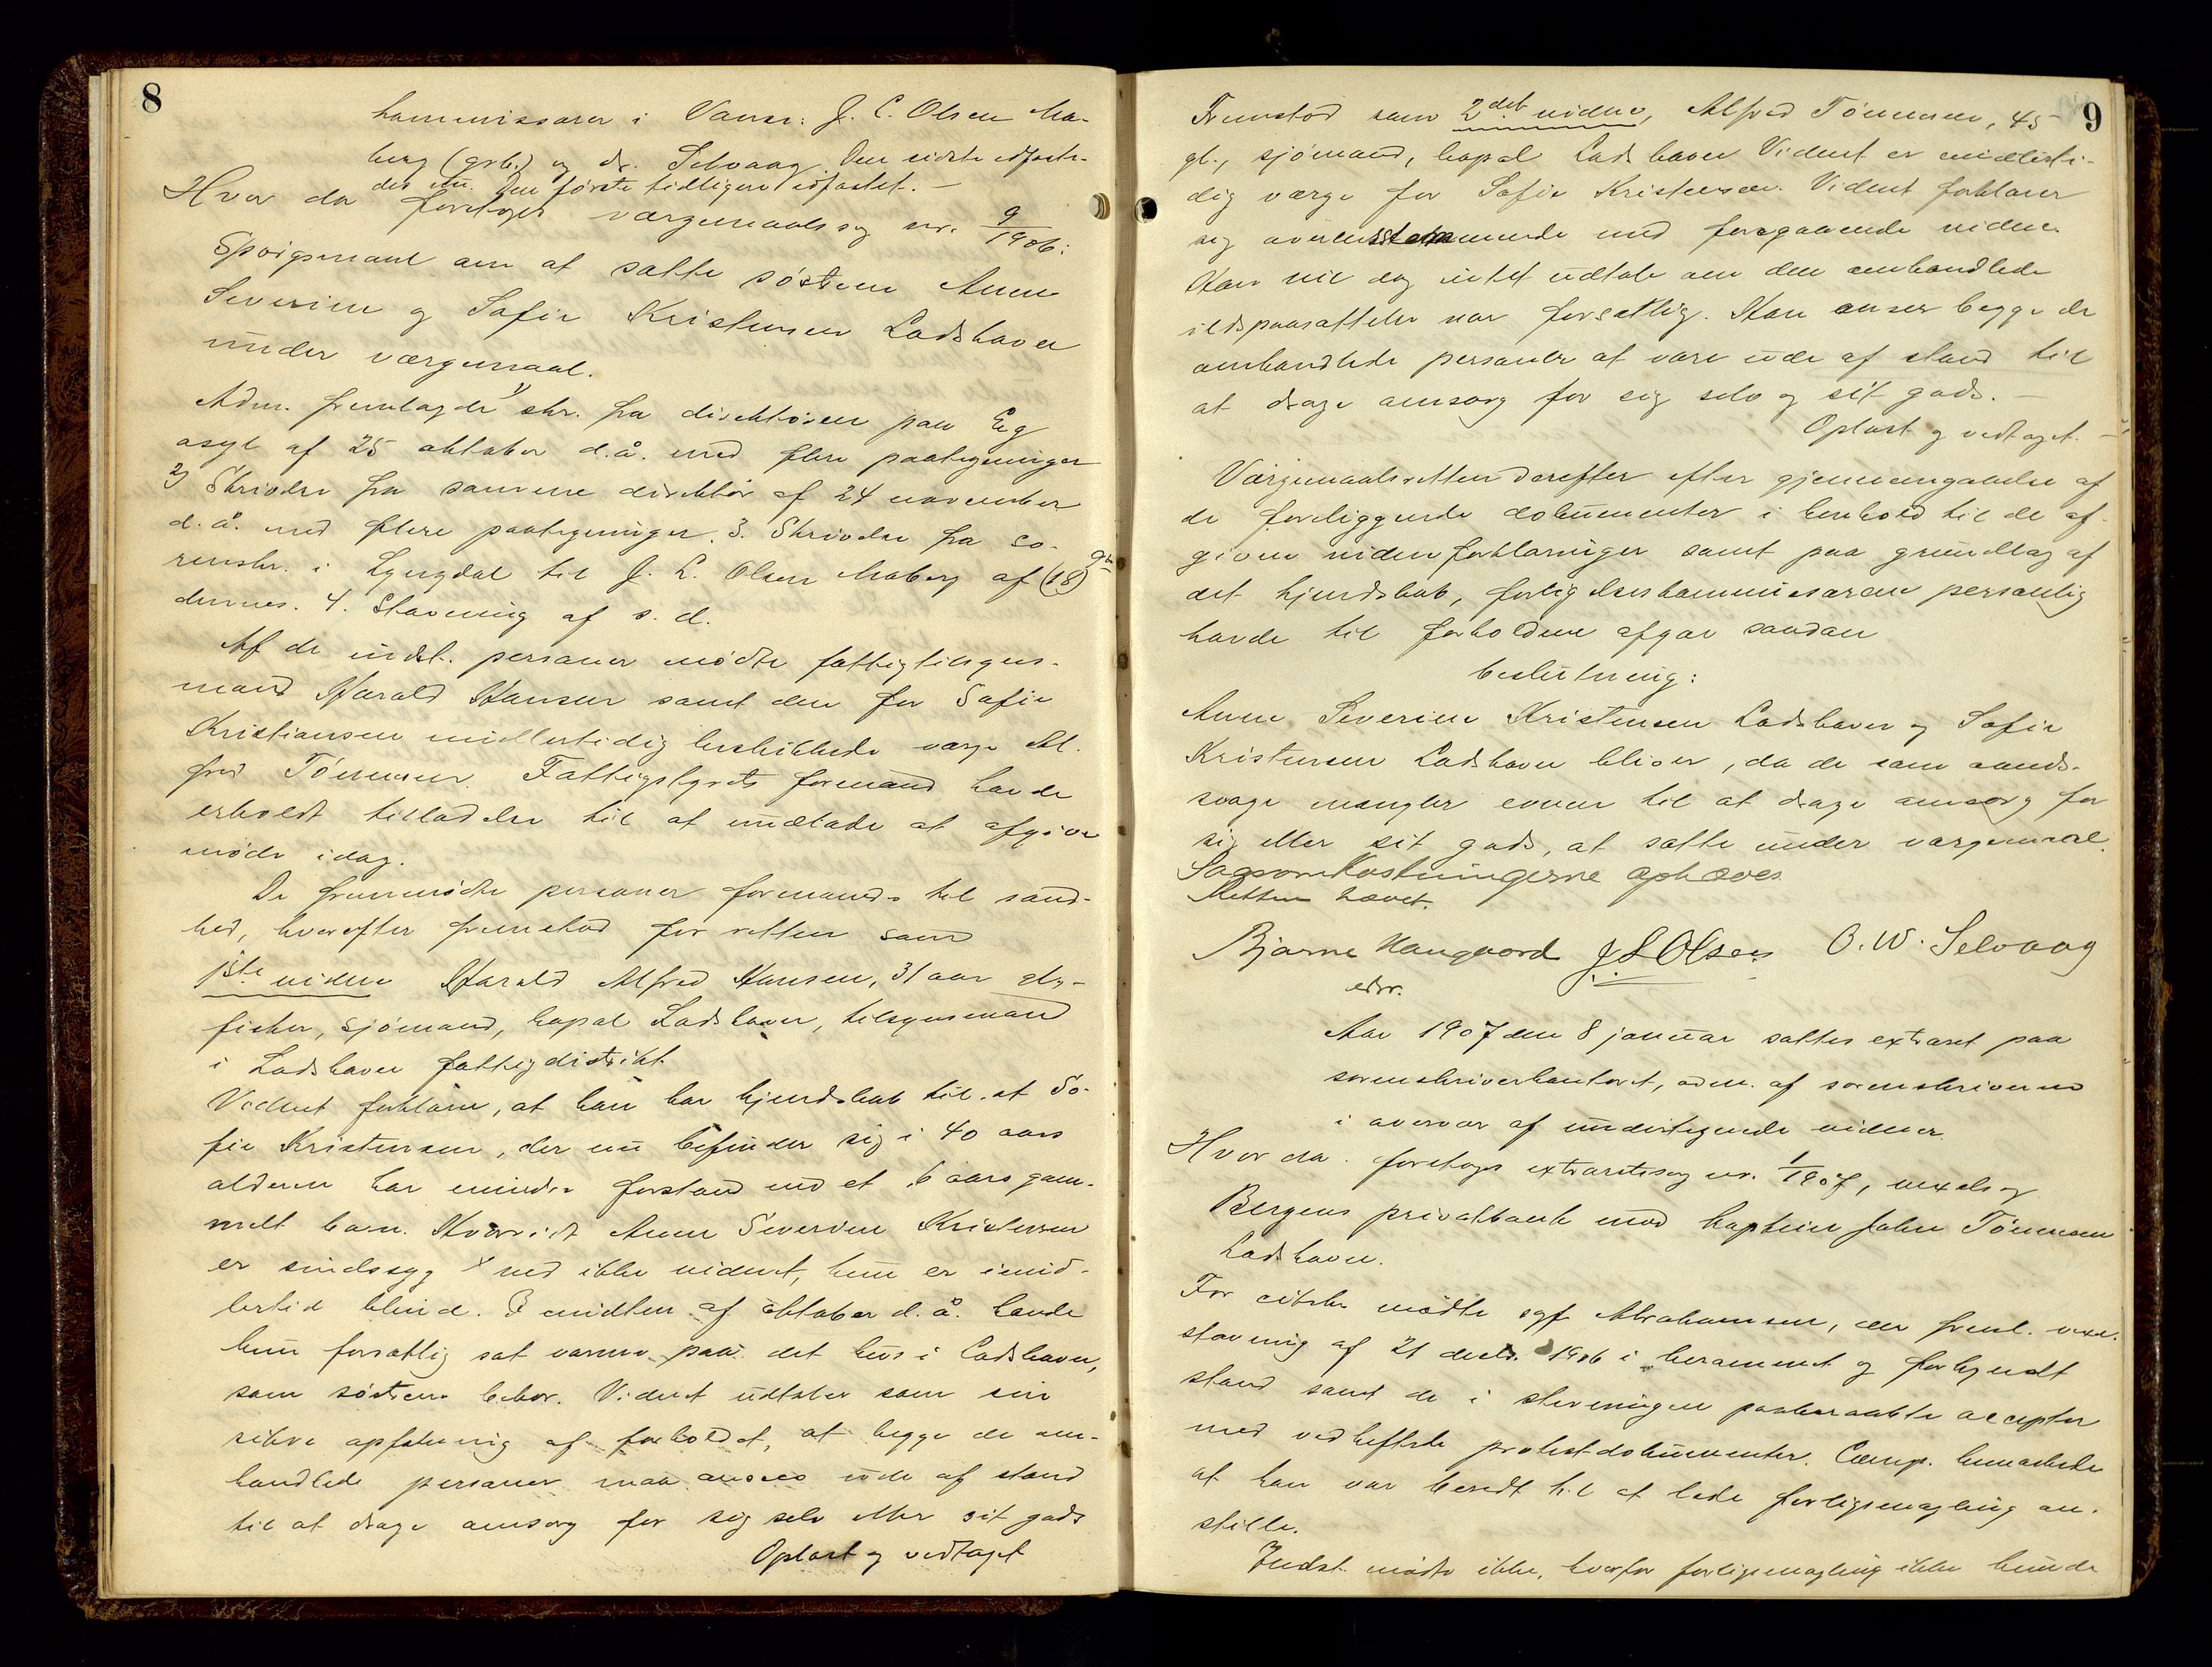 8
kommissærer i Vanse: J. C. Olsen Ma-
berg (gbr.) og dr. Selvaag. Den sidste edfæste-
des nu. Den første tidligere edfæstet. –
Hvor da foretoges værgemaalssag nr. 9/1906:
Spørgsmaal om at sætte søstrene Anne
Severine og Sofie Kristensen Ladshavn
under værgemaal.
Adm. fremlagde 1) skr. fra direktøren paa Eg
asyl af 25 oktober d.å. med flere paategninger
2) Skrivelse fra samme direktør af 24 november
d.å. med flere paategninger. 3. Skrivelse fra so-
renskr. i Lyngdal til J. L. Olsen Maberg af (18)
dennes. 4. Stævning af s. d.
Af de indst. personer mødte fattigtilsyns-
mand Harald Hansen samt den for Sofie
Kristiansen midlertidig beskikkede værge Al-
fred Tønnesen. Fattigstyrets formand havde
erholdt tilladelse til at undlade at afgive
møde idag.
De fremmødte personer formanedes til sand-
hed, hvorefter fremstod for retten som
1ste vidne Harald Alfred Hansen, 31 aar gl.,
fisker, sjømand, bopæl Ladshavn, tilsynsmand
i Ladshavn fattigdistrikt.
Vidnet forklarer, at han har kjendskab til at So-
fie Kristensen, der nu befinder sig i 40 aars
alderen har mindre forstand end et 6 aars gam-
melt barn. Hvorvidt Anne Severine Kristensen
er sindssyg ved ikke vidnet, hun er imid-
lertid blind. I midten af oktober d.å. havde
hun forsætlig sat varme paa det hus i Ladshavn,
som søstrene bebor. Vidnet udtaler som sin
sikre opfatning af forholdet, at begge de om-
handlede personer maa ansees ude af stand
til at drage omsorg for sig selv eller sit gods
Oplæst og vedtaget
9
Fremstod som 2det vidne, Alfred Tønnesen, 45
gl., sjømand, bopæl Ladshavn. Vidnet er midlerti-
dig værge for Sofie Kristensen. Vidnet forklarer
sig overensstemmende med foregaaende vidne.
Han vil dog intet udtale om den omhandlede
ildspaasættelse var forsætlig. Han anser begge de
omhandlede personer at være ude af stand til
at drage omsorg for sig selv og sit gods. –
Oplæst og vedtaget. –
Værgemaalsretten derefter efter gjennemgaaelse af
de foreliggende dokumenter i henhold til de af-
givne vidneforklaringer samt paa grundlag af
det kjendskab, forligelseskommissærerne personlig
havde til forholdene afgav saadan
beslutning:
Anne Severine Kristensen Ladshavn og Sofie
Kristensen Ladshavn bliver, da de som aands-
svage mangler evnen til at drage omsorg for
sig eller sit gods, at sætte under værgemaal.
Sagsomkostningerne ophæves.
Retten hævet.
Bjarne Haugaard J L Olsen O. W. Selvaag
edsv.
Aar 1907 den 8 januar sattes extraret paa
sorenskriverkontoret, adm. af sorenskriveren
i overvær af undertegnede vidner.
Hvor da foretoges extraretssag nr. 1/1907, vexelsag
Bergens privatbank mod kaptein John Tønnesen
Ladshavn.
For citsten mødte sgf. Abrahamsen, der freml. vexel-
stævning af 21 decbr. 1906 i berammet og forkyndt
stand samt de i stævningen paaberaabte accepter
med vedheftede protestdokumenter. Comp. bemærkede
at han var beredt til at lade forligsmægling an-
stille.
Indst. mødte ikke, hvorfor forligsmægling ikke kunde